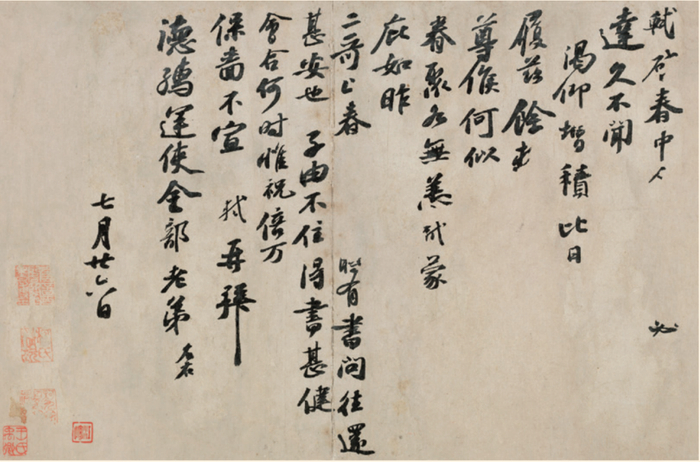 軾啟春中人 必
達久不聞
渴仰增積比日
履茲餘
尊候何似
眷聚各無恙軾蒙
庇如昨
二哥上春 時有書問往還
甚安也 子由不住得書甚健
會合何時惟祝倍万
保嗇不宣 軾再拜
德孺運使金部老弟 左右
七月廿六日